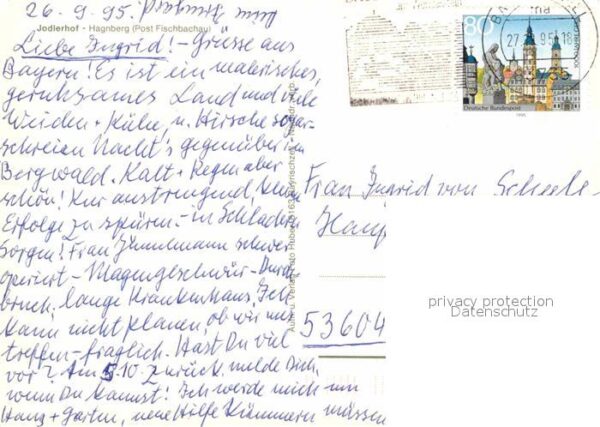 26.9.95.
Jodlerhof - Hagnberg (Post Fischbachau)
Liebe Ingrid! - Grüsse aus
Bayern! Es ist ein malerisches,
geruhsames Land und viele
Weiden + Kühe, u. Hirsche sogar
schreien Nacht's gegenüber im
Bergwald. Kalt + Regen aber
schön! Kur anstrengend, keine
Erfolge zu spüren - in Schladern
Sorgen! Frau schwer
operiert - Magengeschwür - Durch-
bruch, lange Krankenhaus, Ich
kann nicht planen, ob wir uns
treffen - fraglich. Hast Du viel
vor? Am 5.10. zurück, melde Dich,
wenn Du kannst! Ich werde mich um
Haus + Garten, neue Hilfe kümmern müssen
80
Deutsche Bundespost
1995
27. 9.95 - 18
Frau Ingrid von Scheele
Haup
53604
privacy protection
Datenschutz